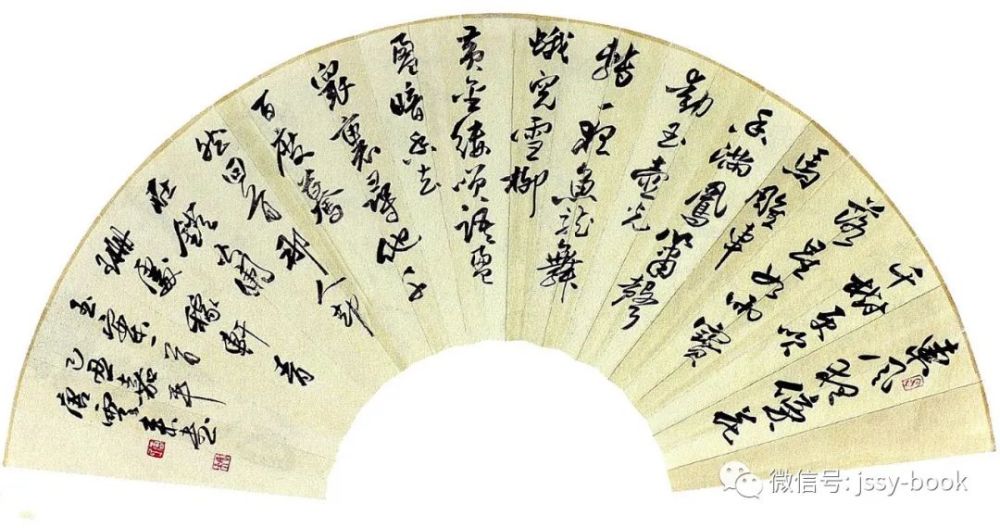 東風夜放花
千樹更吹
落星如雨寶
馬雕車
香滿鳳簫聲
動玉壺光
轉一夜魚龍舞
蛾兒雪柳
黃金縷笑語盈
盈暗香去
眾裏尋他千
百度驀
然回首那人卻
在燈火闌
珊處稼軒青
玉案一首
己丑嘉平
唐雲來書
微信号: jssy-book